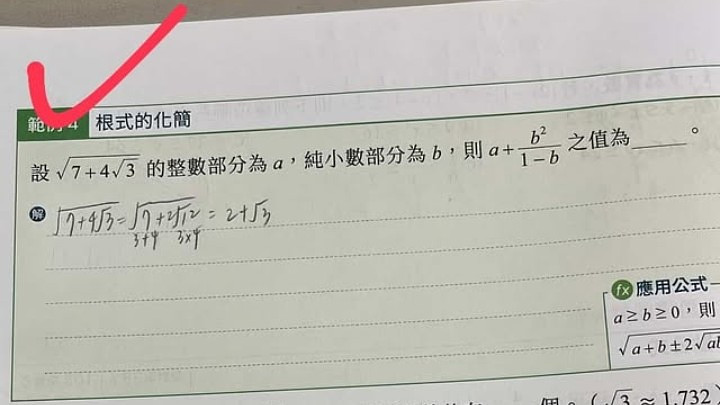 範例 4 根式的化簡
設 √(7+4√3) 的整數部分為 a，純小數部分為 b，則 a + b²/(1−b) 之值為____。
解 √(7+4√3) = √(7+2√12) = 2+√3
3+4 3×4
fx 應用公式
a ≥ b ≥ 0，則
√(a+b±2√ab
(√3 ≈ 1.732)